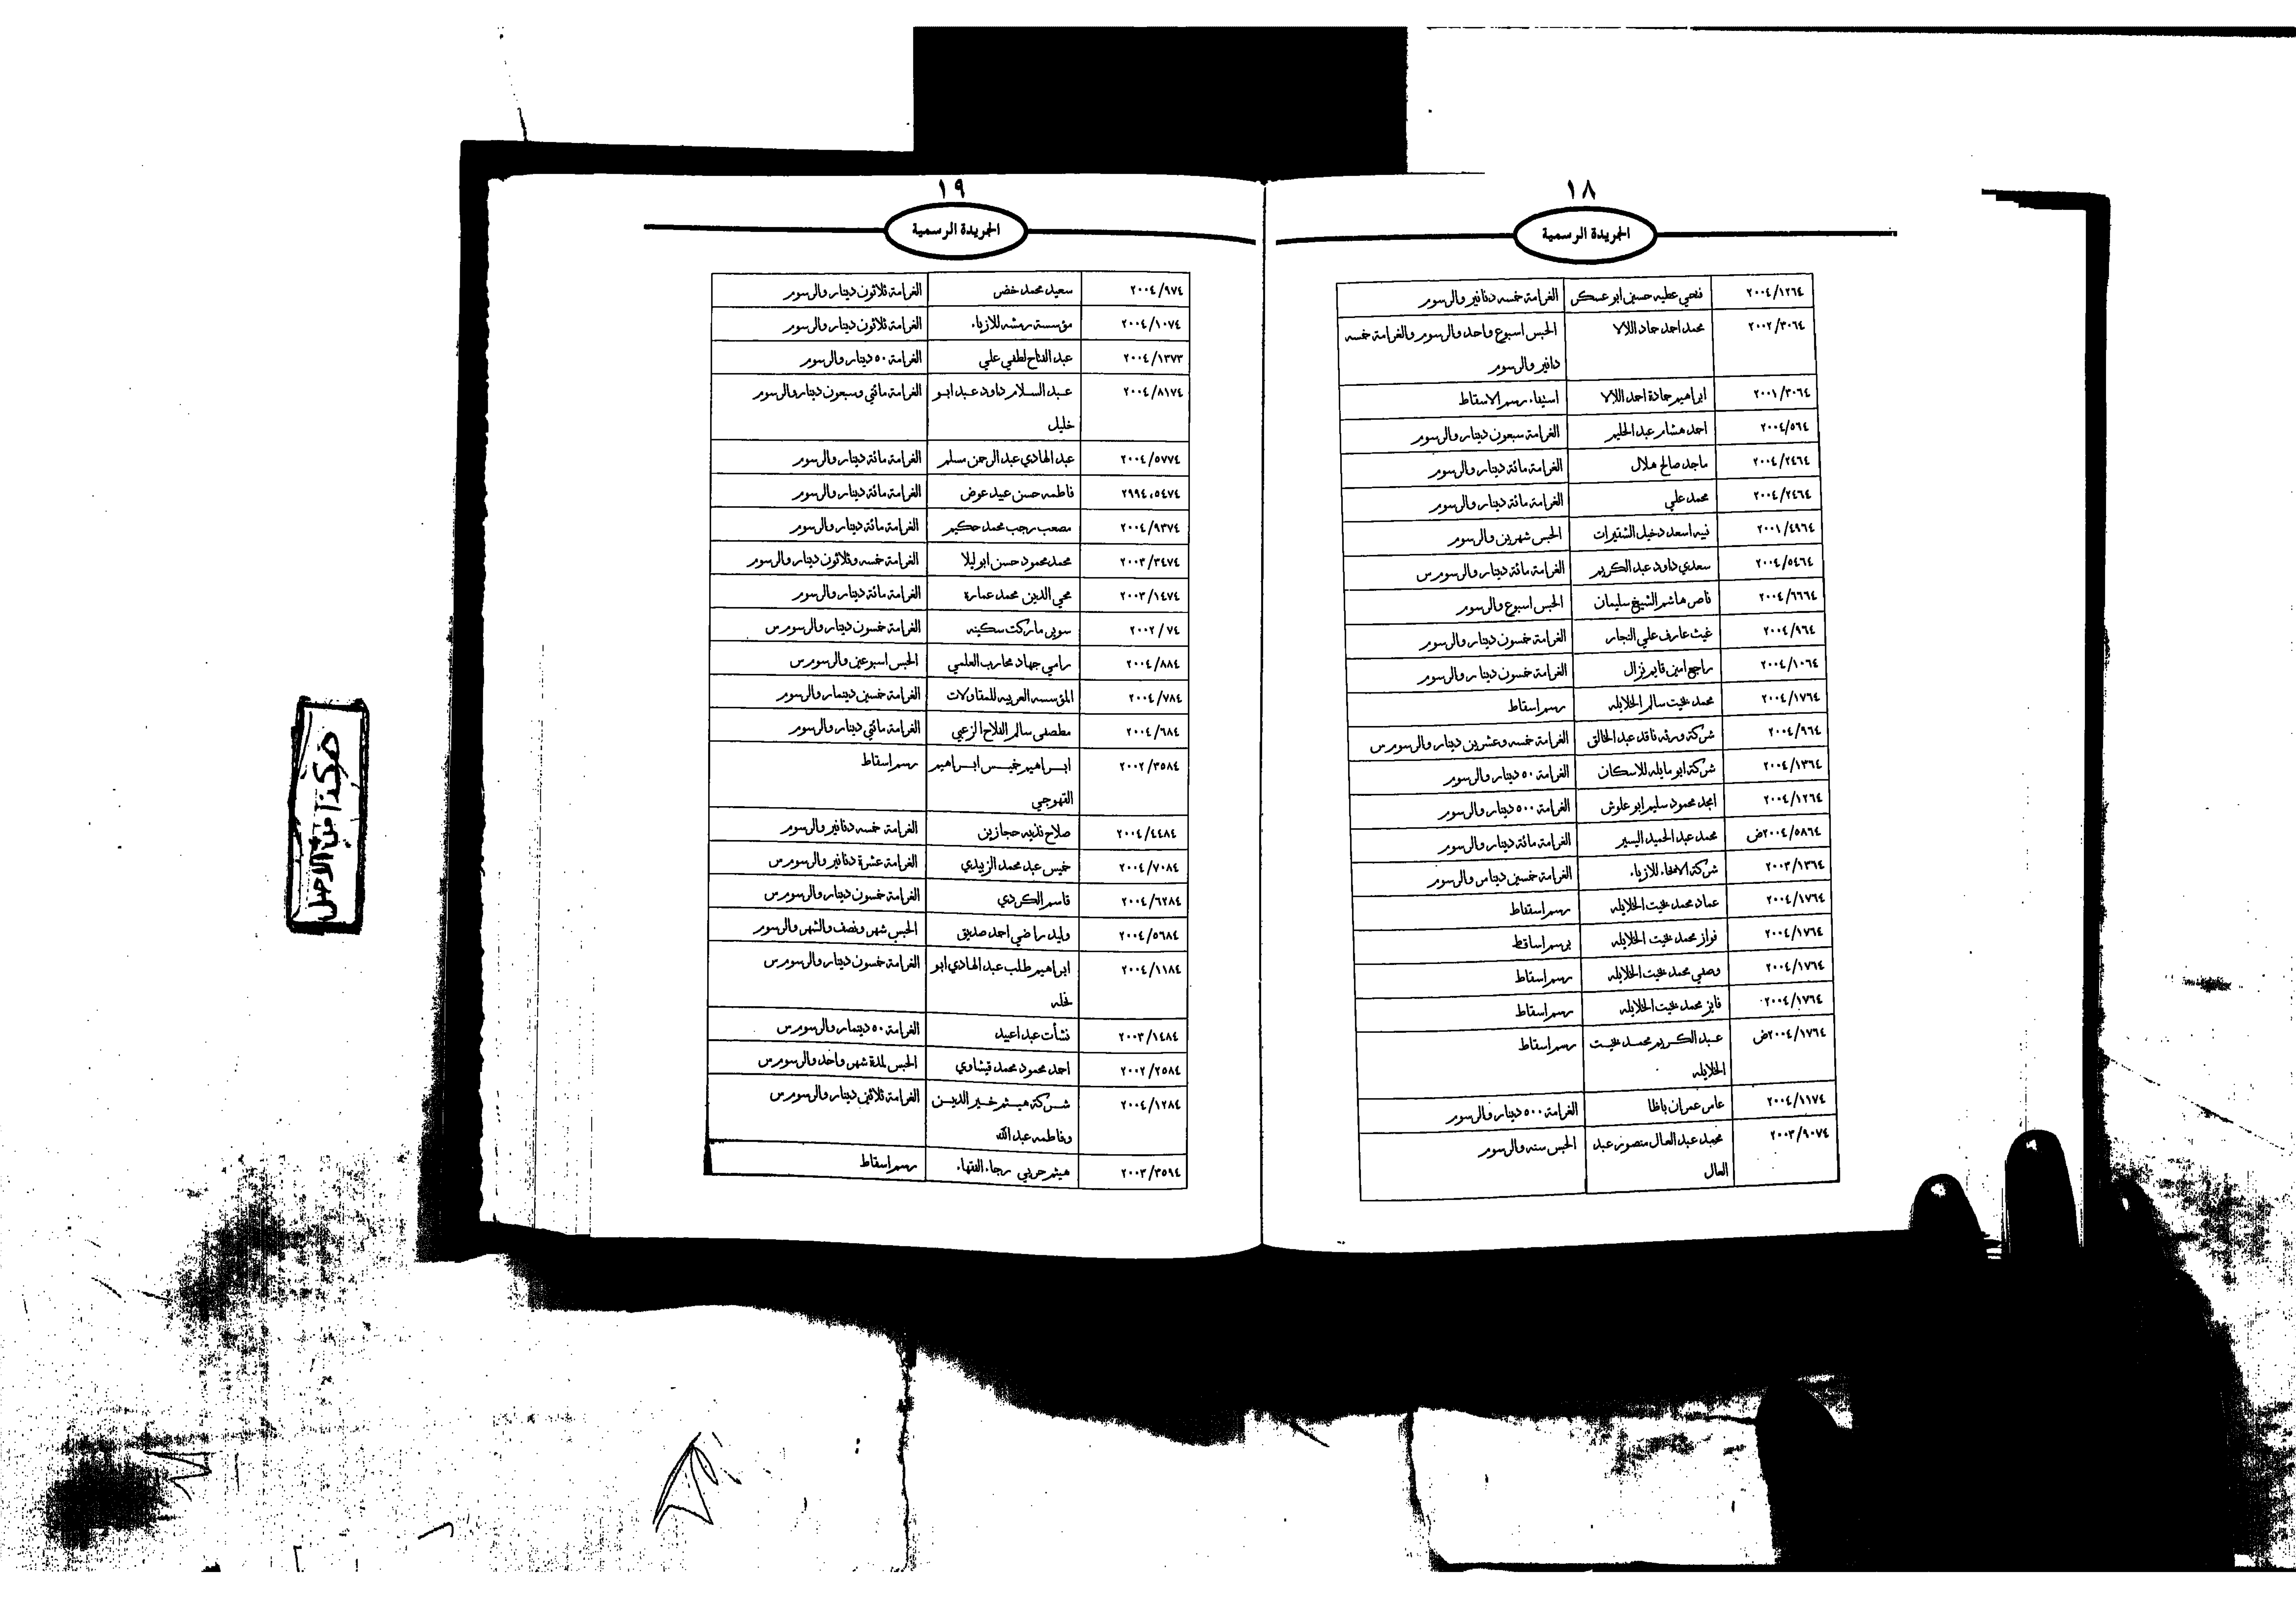 ١٨
الجريدة الرسمية
٢٠٠٤/١٢٦٤ فتحي عطيه حسين ابو عسكر الغرامة خمسه دنانير والرسوم
٢٠٠٢/٣٠٦٤ محمد احمد حماد اللالا الحبس اسبوع واحد والرسوم والغرامة خمسه
دانير والرسوم
٢٠٠١/٣٠٦٤ ابراهيم حمادة احمد اللالا استيفاء رسم الاسقاط
٢٠٠٤/٥٦٤ احمد هشام عبد الحليم الغرامة سبعون دينار والرسوم
٢٠٠٤/٢٤٦٤ ماجد صالح هلال الغرامة مائة دينار والرسوم
٢٠٠٤/٢٤٦٤ محمد علي الغرامة مائة دينار والرسوم
٢٠٠١/٤٩٦٤ نبيه اسعد دخيل الشتيرات الحبس شهرين والرسوم
٢٠٠٤/٥٤٦٤ سعدي داود عبد الكريم الغرامة مائة دينار والرسوم س
٢٠٠٤/٦٦٦٤ ناصر هاشم الشيخ سليمان الحبس اسبوع والرسوم
٢٠٠٤/٩٦٤ غيث عارف علي النجار الغرامة خمسون دينار والرسوم
٢٠٠٤/١٠٦٤ راجع امين قايم نزال الغرامة خمسون دينار والرسوم
٢٠٠٤/١٧٦٤ محمد بخيت سالم الخلايله رسم اسقاط
٢٠٠٤/٩٦٤ شركة ورثه ناقد عبد الخالق الغرامة خمسه وعشرين دينار والرسوم س
٢٠٠٤/١٣٦٤ شركة ابو مايله للاسكان الغرامة ٥٠ دينار والرسوم
٢٠٠٤/١٢٦٤ امجد محمود سليم ابو علوش الغرامة ٥٠٠ دينار والرسوم
٢٠٠٤/٥٨٦٤ض محمد عبد الحميد اليسير الغرامة مائة دينار والرسوم
٢٠٠٣/١٣٦٤ شركة الانحاء للازياء الغرامة خمسين دينار والرسوم
٢٠٠٤/١٧٦٤ عماد محمد بخيت الخلايله رسم اسقاط
٢٠٠٤/١٧٦٤ فواز محمد بخيت الخلايله برسم اساقط
٢٠٠٤/١٧٦٤ وصفي محمد بخيت الخلايله رسم اسقاط
٢٠٠٤/١٧٦٤ فايز محمد بخيت الخلايله رسم اسقاط
٢٠٠٤/١٧٦٤ض عبد الكريم محمد بخيت رسم اسقاط
الخلايله
٢٠٠٤/١١٧٤ عامر عمران باظا الغرامة ٥٠٠ دينار والرسوم
٢٠٠٣/٩٠٧٤ محمد عبد العال منصور عبد الحبس سنه والرسوم
العال
١٩
الجريدة الرسمية
٢٠٠٤/٩٧٤ سعيد محمد خضر الغرامة ثلاثون دينار والرسوم
٢٠٠٤/١٠٧٤ مؤسسة رمشه للازياء الغرامة ثلاثون دينار والرسوم
٢٠٠٤/١٣٧٣ عبد الفتاح لطفي علي الغرامة ٥٠ دينار والرسوم
٢٠٠٤/٨١٧٤ عبد السلام داود عبد ابو الغرامة مائتي وسبعون دينار والرسوم
خليل
٢٠٠٤/٥٧٧٤ عبد الهادي عبد الرحمن مسلم الغرامة مائة دينار والرسوم
٢٩٩٤،٥٤٧٤ فاطمه حسن عيد عوض الغرامة مائة دينار والرسوم
٢٠٠٤/٩٣٧٤ مصعب رجب محمد حكيم الغرامة مائة دينار والرسوم
٢٠٠٣/٣٤٧٤ محمد محمود حسن ابو ليلا الغرامة خمسه وثلاثون دينار والرسوم
٢٠٠٣/١٤٧٤ محي الدين محمد عمارة الغرامة مائة دينار والرسوم
٢٠٠٢/٧٤ سوبر ماركت سكينه الغرامة خمسون دينار والرسوم س
٢٠٠٤/٨٨٤ رامي جهاد محارب العلمي الحبس اسبوعين والرسوم س
٢٠٠٤/٧٨٤ المؤسسه العربيه للمقاولات الغرامة خمسين دينمار والرسوم
٢٠٠٤/٦٨٤ مطصفى سالم الفلاح الزعبي الغرامة مائتي دينار والرسوم
٢٠٠٢/٣٥٨٤ ابراهيم خميس ابراهيم رسم اسقاط
القهوجي
٢٠٠٤/٤٤٨٤ صلاح نذيه حجازين الغرامة خمسه دنانير والرسوم
٢٠٠٤/٧٠٨٤ خميس عبد محمد الزبيدي الغرامة عشرة دنانير والرسوم س
٢٠٠٤/٦٢٨٤ قاسم الكردي الغرامة خمسون دينار والرسوم س
٢٠٠٤/٥٦٨٤ وليد راضي احمد صديق الحبس شهر ونصف والشهر والرسوم
٢٠٠٤/١١٨٤ ابراهيم طلب عبد الهادي ابو الغرامة خمسون دينار والرسوم س
نحله
٢٠٠٣/١٤٨٤ نشأت عبد اعبيد الغرامة ٥٠ دينمار والرسوم س
٢٠٠٢/٢٥٨٤ احمد محمود محمد قيشاوي الحبس لمدة شهر واحد والرسوم س
٢٠٠٤/١٢٨٤ شركة هيثم خير الدين الغرامة ثلاثين دينار والرسوم س
وفاطمه عبد الله
٢٠٠٣/٣٥٩٤ هيثم حربي رجاء الفقهاء رسم اسقاط
هكذا من الاصل